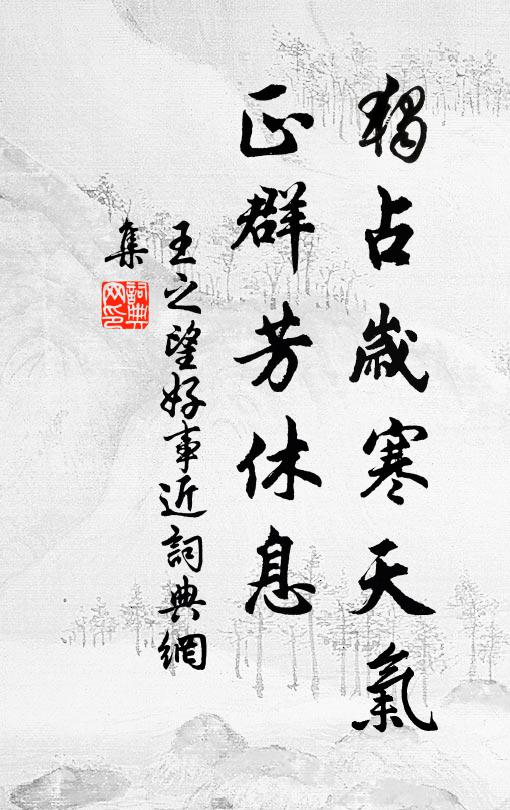 獨占歲寒天氣
正群芳休息
王之望好事近詞典網
集
詞典
网印